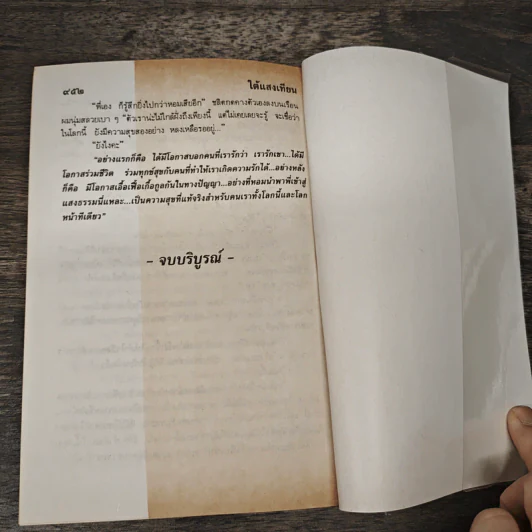 ๔๕๒ ใต้แสงเทียน
"พี่เอง ก็รู้สึกยิ่งไปกว่าหอมเสียอีก" ชลิตกดคางตัวเองลงบนเรือน
ผมนุ่มสลวยเบา ๆ "ตัวเราน่ะไม่ใกล้ฝั่งถึงเพียงนี้ แต่ไม่เคยเลยจะรู้ จะเชื่อว่า
ในโลกนี้ ยังมีความสุขสองอย่าง หลงเหลืออยู่..."
"ยังไงคะ"
"อย่างแรกก็คือ ได้มีโอกาสบอกคนที่เรารักว่า เรารักเขา...ได้มี
โอกาสร่วมชีวิต ร่วมทุกข์สุขกับคนที่ทำให้เราเกิดความรักได้...อย่างหลัง
ก็คือ มีโอกาสเอื้อเฟื้อเกื้อกูลกันในทางปัญญา...อย่างที่หอมนำพาพี่เข้าสู่
แสงธรรมนี่แหละ...เป็นความสุขที่แท้จริงสำหรับคนเราทั้งโลกนี้และโลก
หน้าทีเดียว"
- จบบริบูรณ์ -